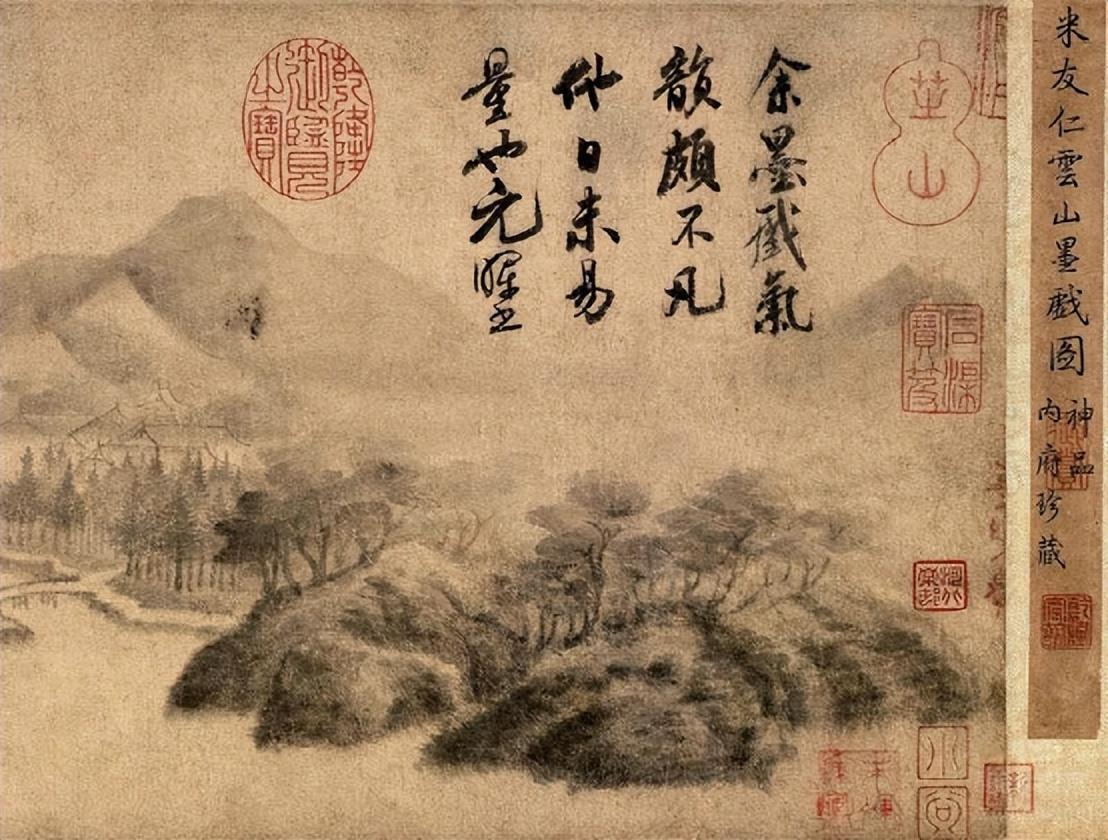 米友仁雲山墨戲圖
神品
內府珍藏
余墨戲氣
韻頗不凡
他日未易
量也元暉書
乾隆御覽之寶
石渠寶笈